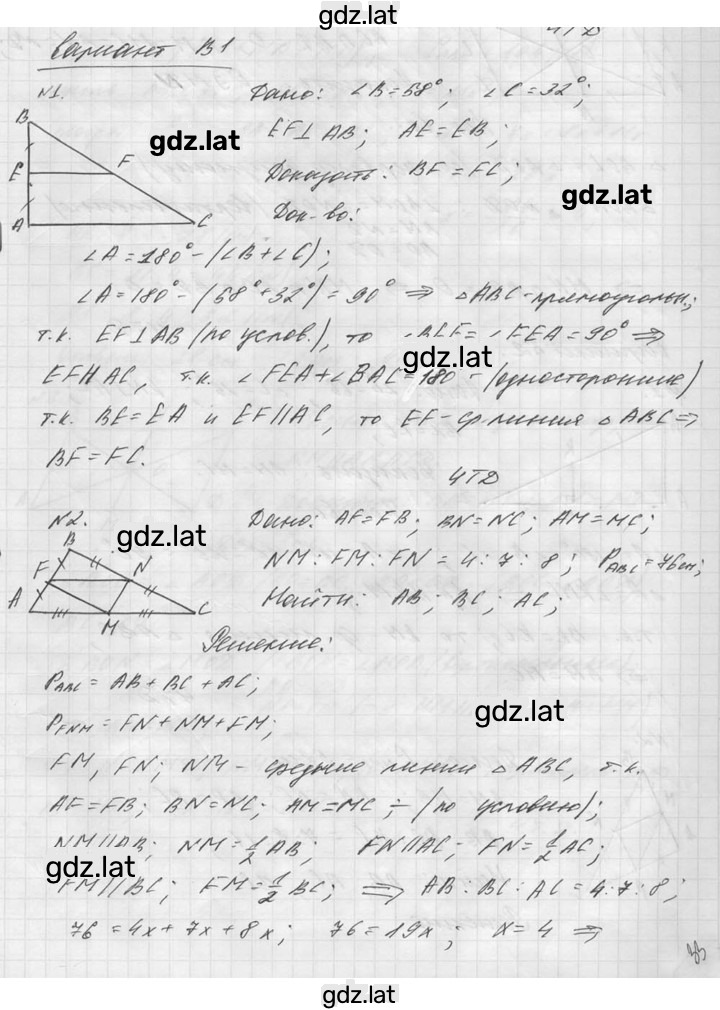 gdz.lat
ЧТД
Вариант В1
N1.
Дано: ∠B=58°; ∠C=32°;
B
EF⊥AB; AE=EB;
gdz.lat
E
F
Доказать: BF=FC;
gdz.lat
A
C
Док-во:
∠A=180°-(∠B+∠C);
∠A=180°-(58°+32°)=90° ⇒ △ABC-прямоугольн.;
т.к. EF⊥AB (по услов.), то ∠BEF=∠FEA=90° ⇒
gdz.lat
EF∥AC, т.к. ∠FEA+∠BAC=180 - (односторонние)
т.к. BE=EA и EF∥AC, то EF-ср.линия △ABC ⇒
BF=FC.
ЧТД
N2.
Дано: AF=FB; BN=NC; AM=MC;
gdz.lat
B
F
N
NM:FM:FN=4:7:8; P_ABC=76см;
A
M
C
Найти: AB; BC; AC;
Решение:
P_ABC=AB+BC+AC;
P_FNM=FN+NM+FM;
gdz.lat
FM, FN; NM - средние линии △ABC, т.к.
AF=FB; BN=NC; AM=MC ÷ (по условию);
NM∥AB; NM=1/2AB; FN∥AC; FN=1/2AC;
gdz.lat
FM∥BC; FM=1/2BC; ⇒ AB:BC:AC=4:7:8;
76=4x+7x+8x; 76=19x; x=4 ⇒
gdz.lat